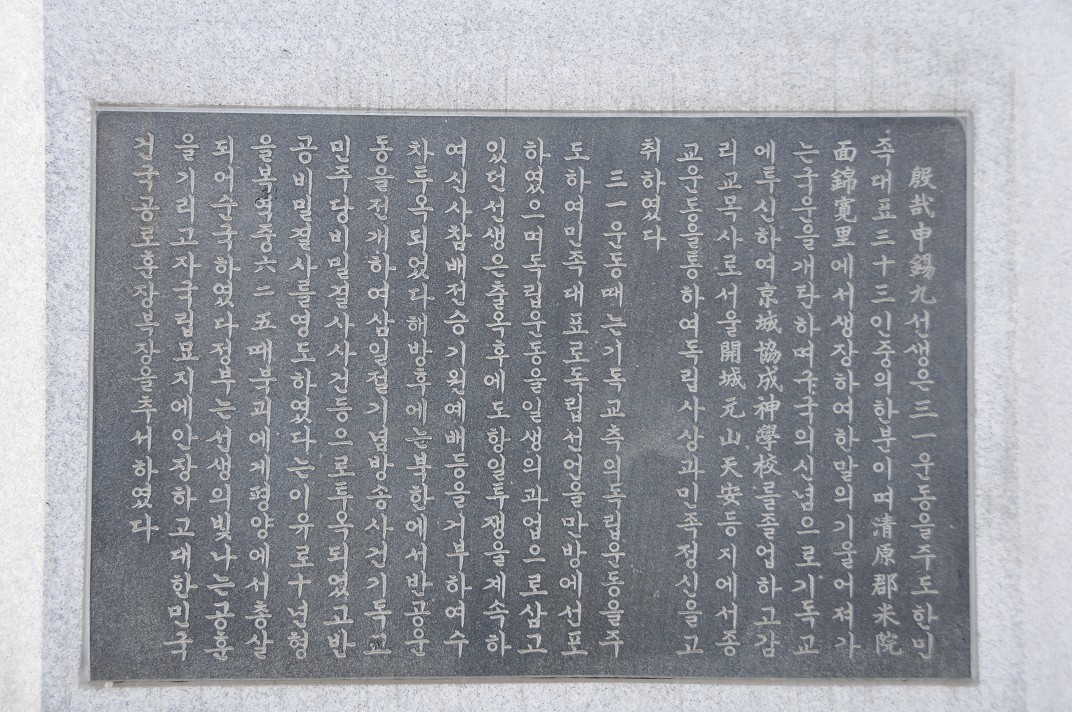 殷哉申錫九선생은三一운동을주도한민
족대표三十三인중의한분이며淸原郡米院
面錦寬里에서생장하여한말의기울어져가
는국운을개탄하며구국의신념으로기독교
에투신하여京城協成神學校를졸업하고감
리교목사로서울開城元山天安등지에서종
교운동을통하여독립사상과민족정신을고
취하였다
三一운동때는기독교측의독립운동을주
도하여민족대표로독립선언을만방에선포
하였으며독립운동을일생의과업으로삼고
있던선생은출옥후에도항일투쟁을계속하
여신사참배전승기원예배등을거부하여수
차투옥되었다해방후에는북한에서반공운
동을전개하여삼일절기념방송사건기독교
민주당비밀결사사건등으로투옥되였고반
공비밀결사를영도하였다는이유로十년형
을복역중六二五때북괴에게평양에서총살
되어순국하였다정부는선생의빛나는공훈
을기리고자국립묘지에안장하고대한민국
건국공로훈장복장을추서하였다